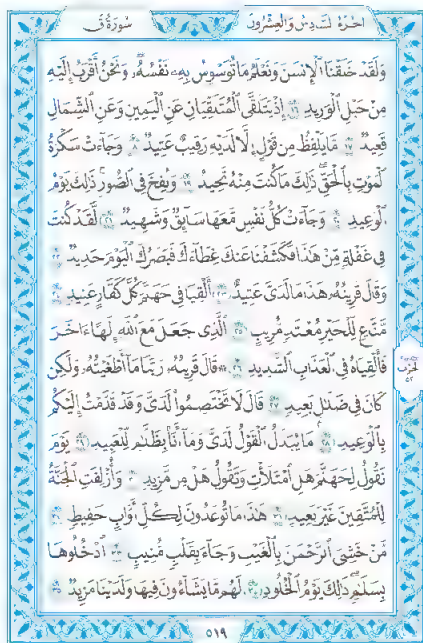 سُورَةُ قٓ
الجزء السادس والعشرون
وَلَقَدْ خَلَقْنَا الْإِنسَٰنَ وَنَعْلَمُ مَا تُوَسْوِسُ بِهِۦ نَفْسُهُۥ وَنَحْنُ أَقْرَبُ إِلَيْهِ
مِنْ حَبْلِ الْوَرِيدِ ١٦ إِذْ يَتَلَقَّى الْمُتَلَقِّيَانِ عَنِ الْيَمِينِ وَعَنِ الشِّمَالِ
قَعِيدٌ ١٧ مَّا يَلْفِظُ مِن قَوْلٍ إِلَّا لَدَيْهِ رَقِيبٌ عَتِيدٌ ١٨ وَجَآءَتْ سَكْرَةُ
الْمَوْتِ بِالْحَقِّ ذَٰلِكَ مَا كُنتَ مِنْهُ تَحِيدُ ١٩ وَنُفِخَ فِي الصُّورِ ذَٰلِكَ يَوْمُ
الْوَعِيدِ ٢٠ وَجَآءَتْ كُلُّ نَفْسٍ مَّعَهَا سَآئِقٌ وَشَهِيدٌ ٢١ لَّقَدْ كُنتَ
فِي غَفْلَةٍ مِّنْ هَٰذَا فَكَشَفْنَا عَنكَ غِطَآءَكَ فَبَصَرُكَ الْيَوْمَ حَدِيدٌ ٢٢
وَقَالَ قَرِينُهُۥ هَٰذَا مَا لَدَيَّ عَتِيدٌ ٢٣ أَلْقِيَا فِي جَهَنَّمَ كُلَّ كَفَّارٍ عَنِيدٍ ٢٤
مَّنَّاعٍ لِّلْخَيْرِ مُعْتَدٍ مُّرِيبٍ ٢٥ الَّذِي جَعَلَ مَعَ اللَّهِ إِلَٰهًا ءَاخَرَ
فَأَلْقِيَاهُ فِي الْعَذَابِ الشَّدِيدِ ٢٦ ۞ قَالَ قَرِينُهُۥ رَبَّنَا مَآ أَطْغَيْتُهُۥ وَلَٰكِن
كَانَ فِي ضَلَٰلٍۭ بَعِيدٍ ٢٧ قَالَ لَا تَخْتَصِمُوا لَدَيَّ وَقَدْ قَدَّمْتُ إِلَيْكُم
بِالْوَعِيدِ ٢٨ مَا يُبَدَّلُ الْقَوْلُ لَدَيَّ وَمَآ أَنَا۠ بِظَلَّٰمٍ لِّلْعَبِيدِ ٢٩ يَوْمَ
نَقُولُ لِجَهَنَّمَ هَلِ امْتَلَأْتِ وَتَقُولُ هَلْ مِن مَّزِيدٍ ٣٠ وَأُزْلِفَتِ الْجَنَّةُ
لِلْمُتَّقِينَ غَيْرَ بَعِيدٍ ٣١ هَٰذَا مَا تُوعَدُونَ لِكُلِّ أَوَّابٍ حَفِيظٍ ٣٢
مَّنْ خَشِيَ الرَّحْمَٰنَ بِالْغَيْبِ وَجَآءَ بِقَلْبٍ مُّنِيبٍ ٣٣ ادْخُلُوهَا
بِسَلَٰمٍ ذَٰلِكَ يَوْمُ الْخُلُودِ ٣٤ لَهُم مَّا يَشَآءُونَ فِيهَا وَلَدَيْنَا مَزِيدٌ ٣٥
الحزب
٥٢
٥١٩